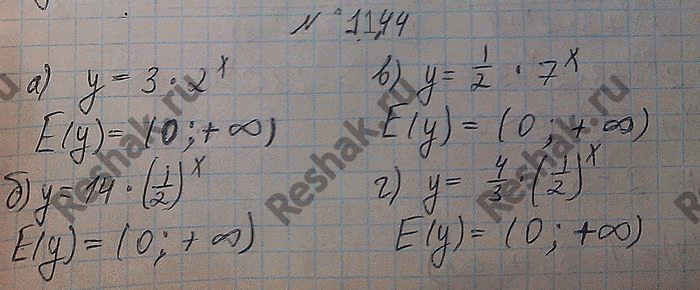 № 1144
а) y = 3 · 2^x
E(y) = (0; +∞)
б) y = 14 · (1/2)^x
E(y) = (0; +∞)
в) y = 1/2 · 7^x
E(y) = (0; +∞)
г) y = 4/3 · (1/2)^x
E(y) = (0; +∞)
Reshak.ru
Reshak.ru
Reshak.ru
Reshak.ru